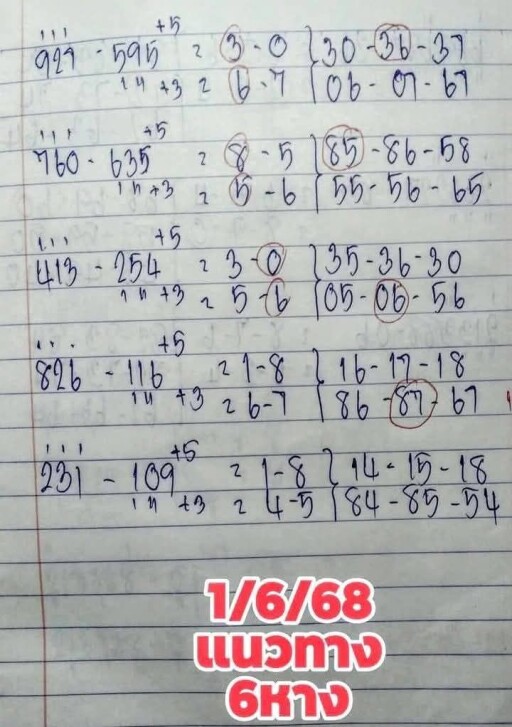 +5
927 - 595 = 3 - 0 } 30 - 36 - 37
14 +3 = 6 - 7 | 06 - 07 - 67
+5
760 - 635 = 8 - 5 } 85 - 86 - 58
14 +3 = 5 - 6 { 55 - 56 - 65
+5
413 - 254 = 3 - 0 } 35 - 36 - 30
14 +3 = 5 - 6 | 05 - 06 - 56
+5
826 - 116 = 1 - 8 } 16 - 17 - 18
14 +3 = 6 - 7 | 86 - 87 - 67
+5
231 - 109 = 1 - 8 } 14 - 15 - 18
14 +3 = 4 - 5 | 84 - 85 - 54
1/6/68
แนวทาง
6หาง